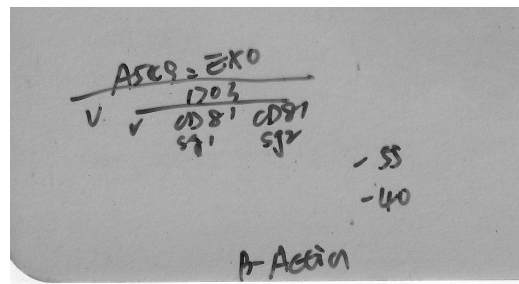 A549 = EXO
1203
V V CD81 CD81
sg1 sg2
- 55
- 40
β-Actin